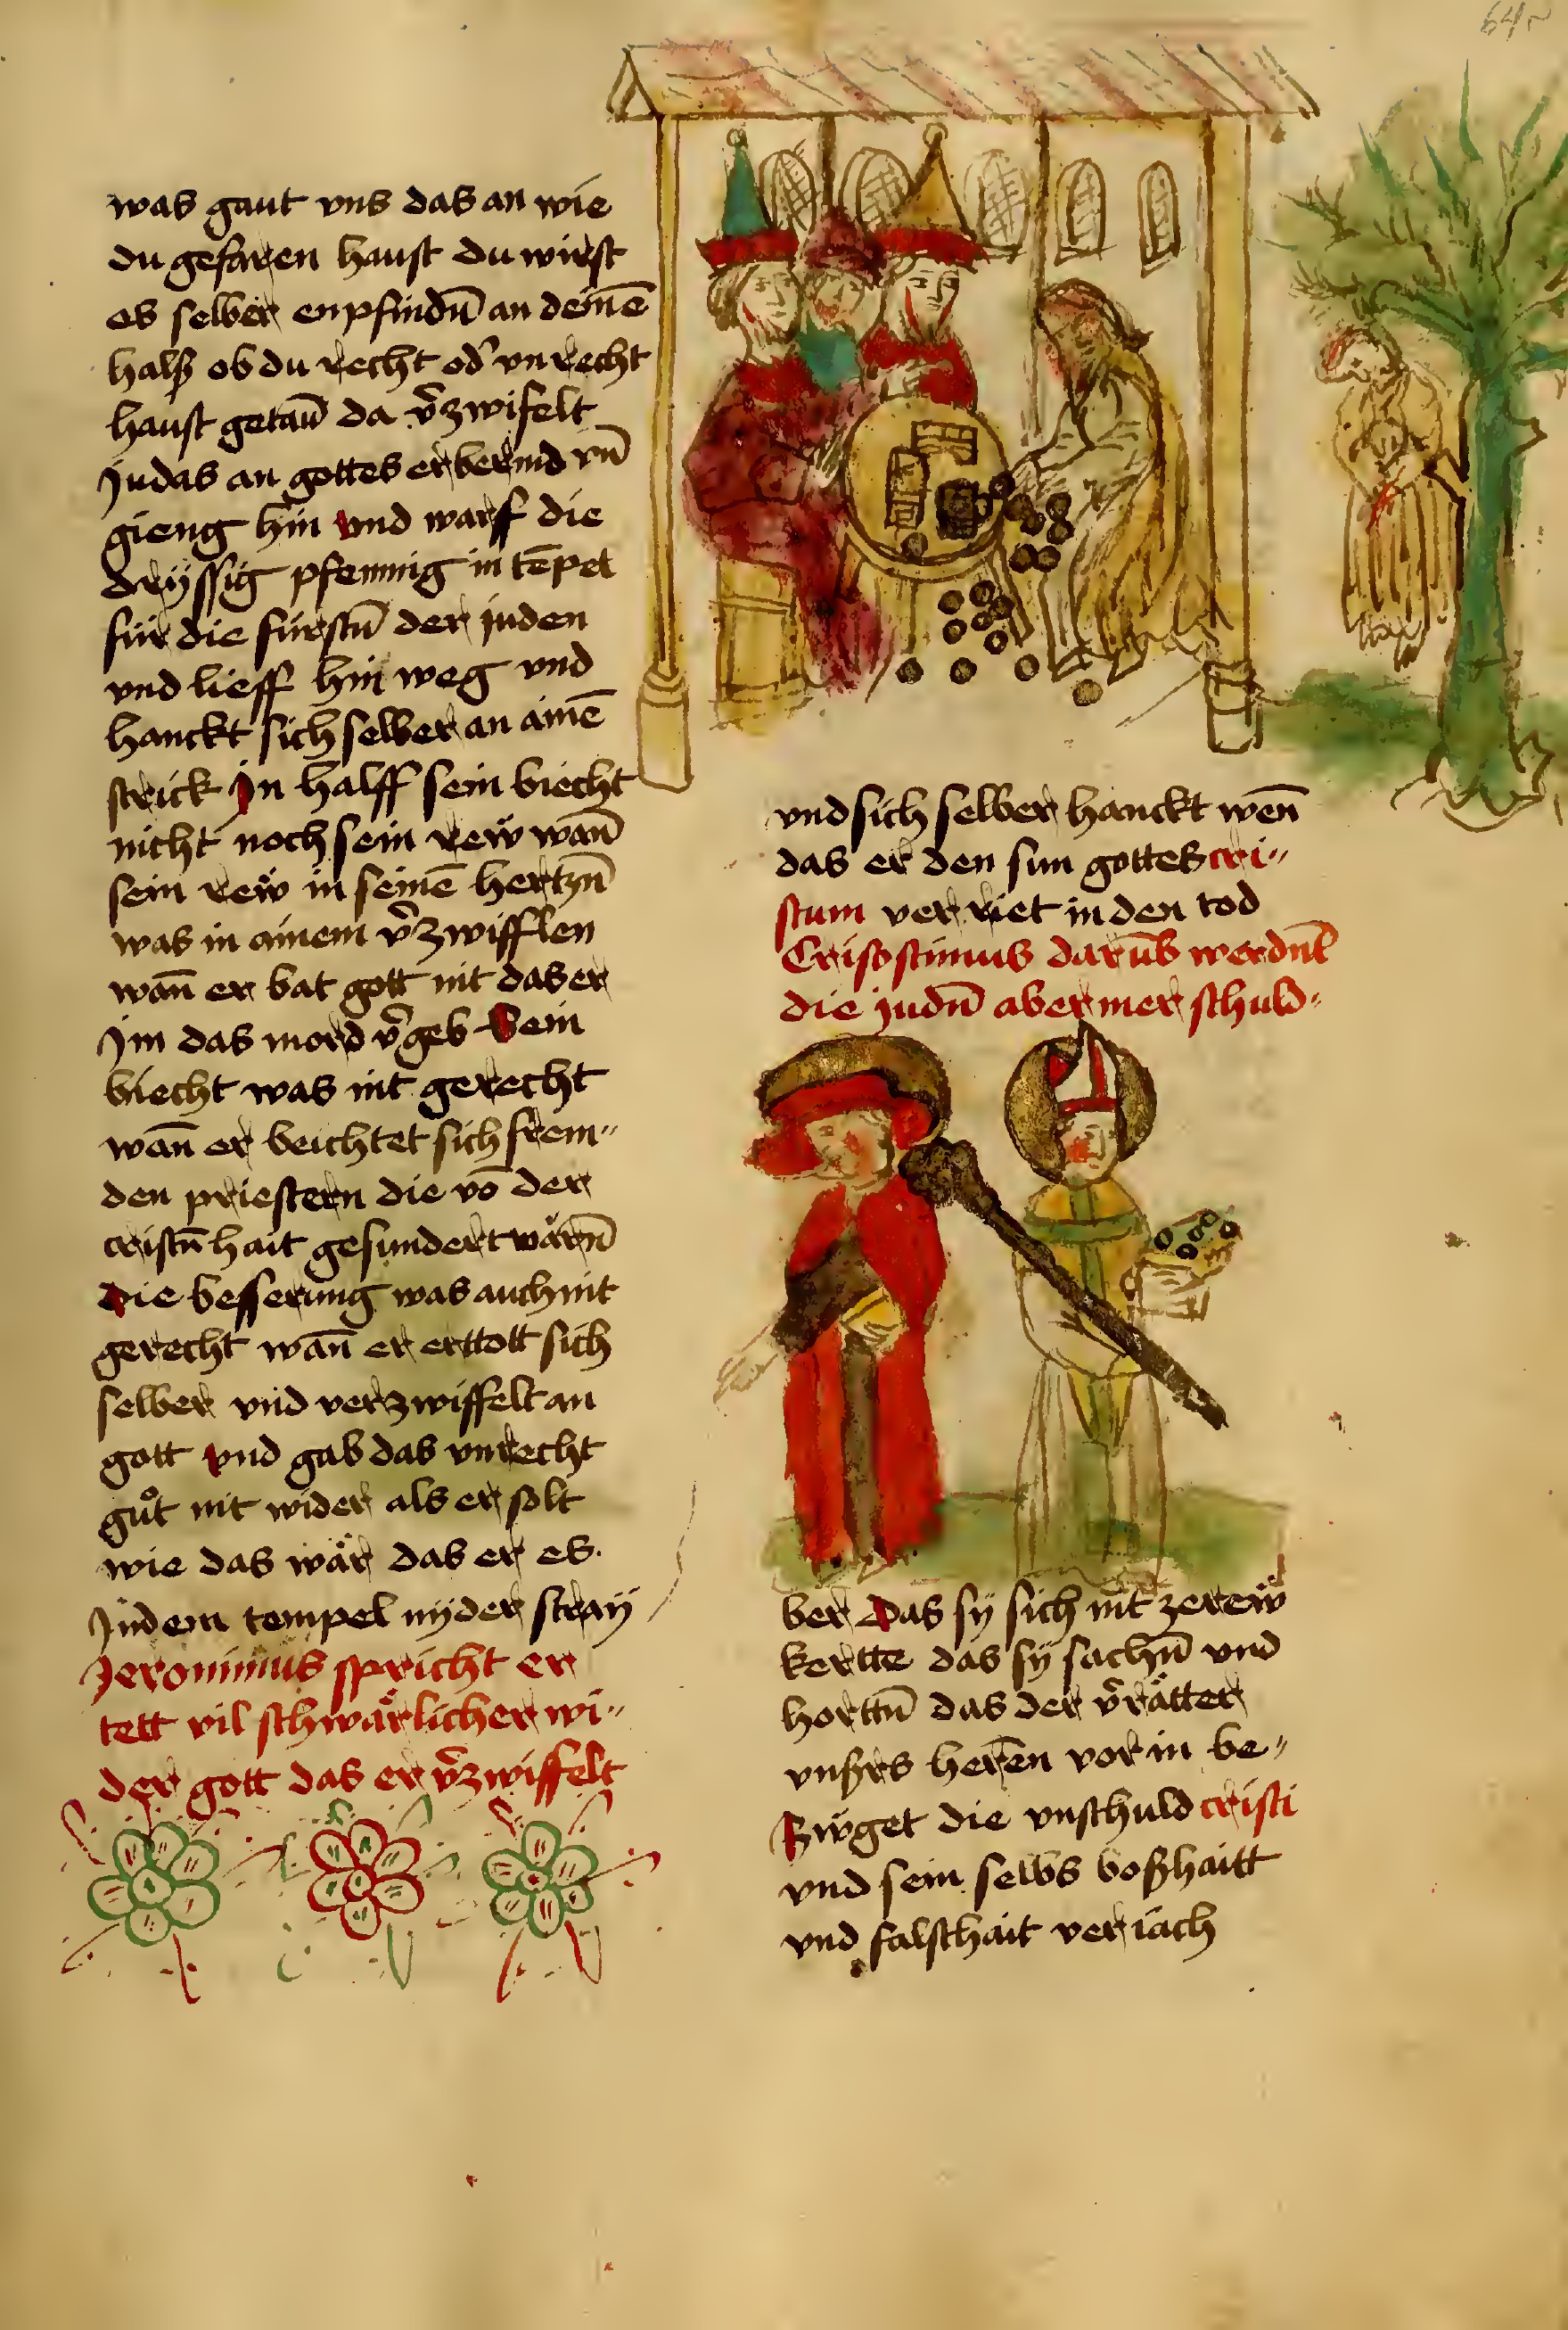 64r
was gaut vns das an wie
du gefaren haust du wirst
es selber enpfindn̄ an deinē
halß ob du recht od̕ vnrecht
haust getan̄ da v̄zwifelt
Judas an gottes erbermd vn̄
gieng hin vnd warf die
dryssig pfennig in tēpel
für die fürstn̄ der juden
vnd lieff hin weg vnd
hanckt sich selber an ainē
strick Jn halff sein biecht
nicht noch sein rew wan̄
sein rew in seinē hertzn̄
was in ainem v̄zwifflen
wan̄ er bat gott nit das er
Jm das mord v̄geb Sein
biecht was nit gerecht
wan̄ er beichtet sich frem〃
den priestern die vō der
cristn̄hait gesundert wärn̄
die besserung was auch nit
gerecht wan̄ er erttott sich
selber vnd verzwiffelt an
gott vnd gab das vnrecht
gůt nit wider als er solt
wie das wär das er es
Jndem tempel nyder straÿ
Jeronimus spricht er
tett vil schwärlicher wi〃
der gott das er v̄zwiffelt
vnd sich selber hanckt wen̄
das er den sun gottes cri〃
stum verriet in den tod
Crisostimus darūb werdn̄t
die judn̄ aber mer schuld〃
ber das sÿ sich nit ze rew
kertte das sÿ sachn̄ vnd
horttn̄ das der v̄rätter
vnßrs herēn vor in be〃
zwget die vnschuld cristi
vnd sein selbs boßhaitt
vnd falschait veriach